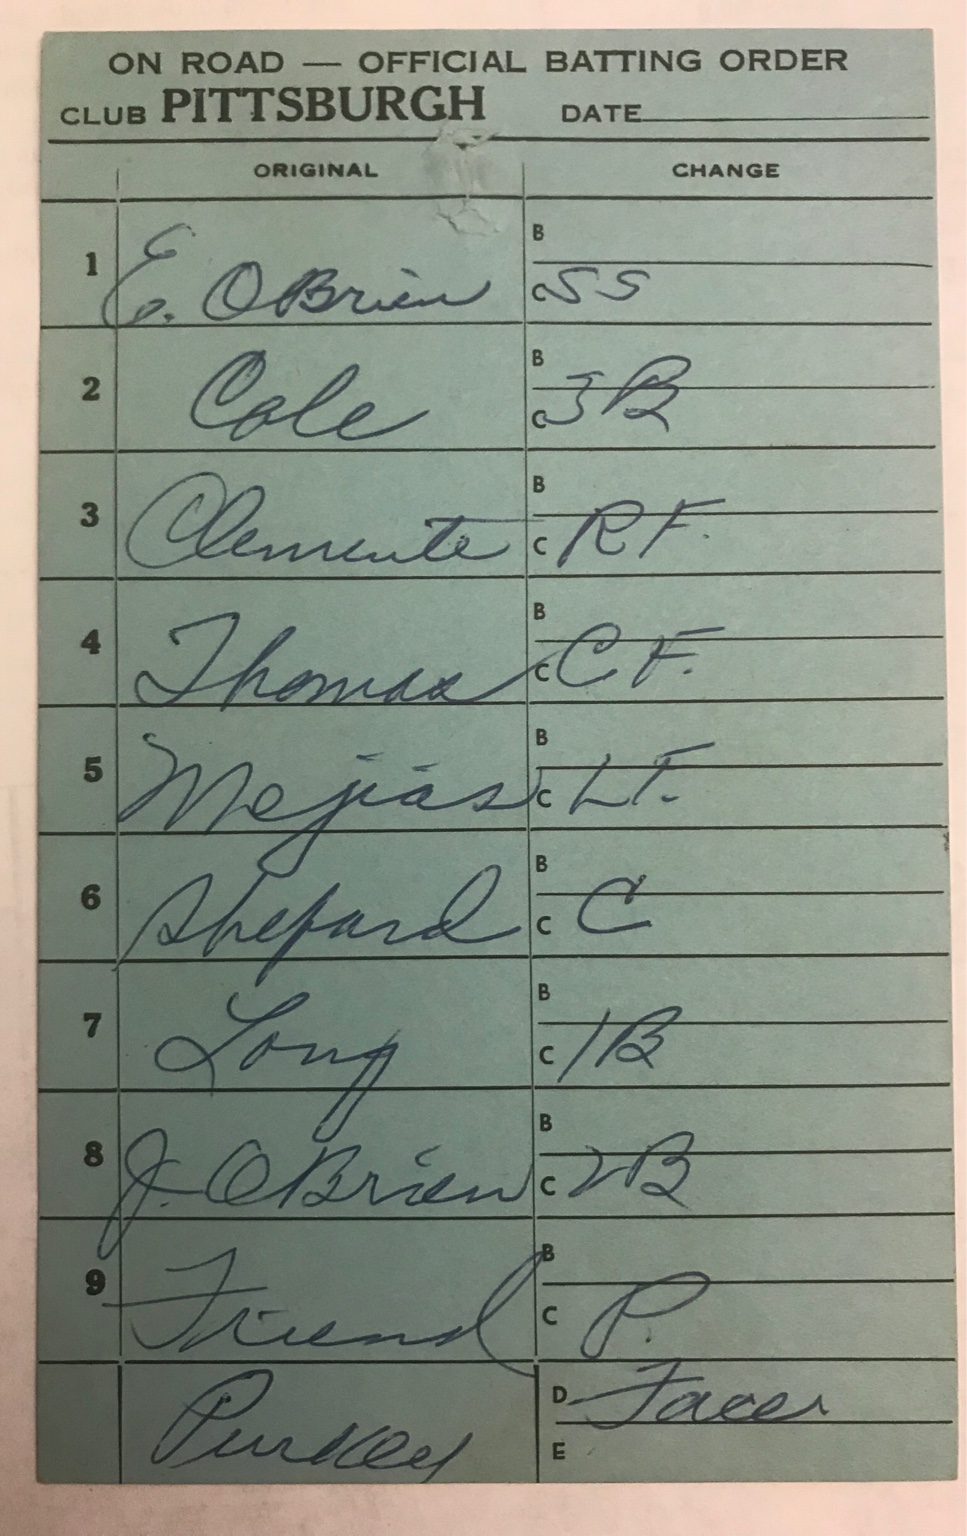 ON ROAD — OFFICIAL BATTING ORDER
CLUB PITTSBURGH DATE
ORIGINAL CHANGE
B
1 E. OBrien C SS
B
2 Cole C 3B
B
3 Clemente C RF.
B
4 Thomas C C.F.
B
5 Mejias C LF.
B
6 Shepard C C
B
7 Long C 1B
B
8 J. OBrien C 2B
B
9 Friend C P.
Purkey D Face
E